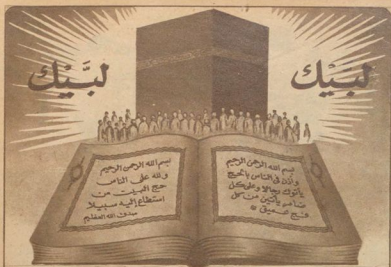 لبَّيْك
لبَّيْك
بسم الله الرحمن الرحيم
وأذن فى الناس بالحج
يأتوك رجالا وعلى كل
ضامر يأتين من كل
فج عميق
بسم الله الرحمن الرحيم
ولله على الناس
حج البيت من
استطاع إليه سبيلا
صدق الله العظيم